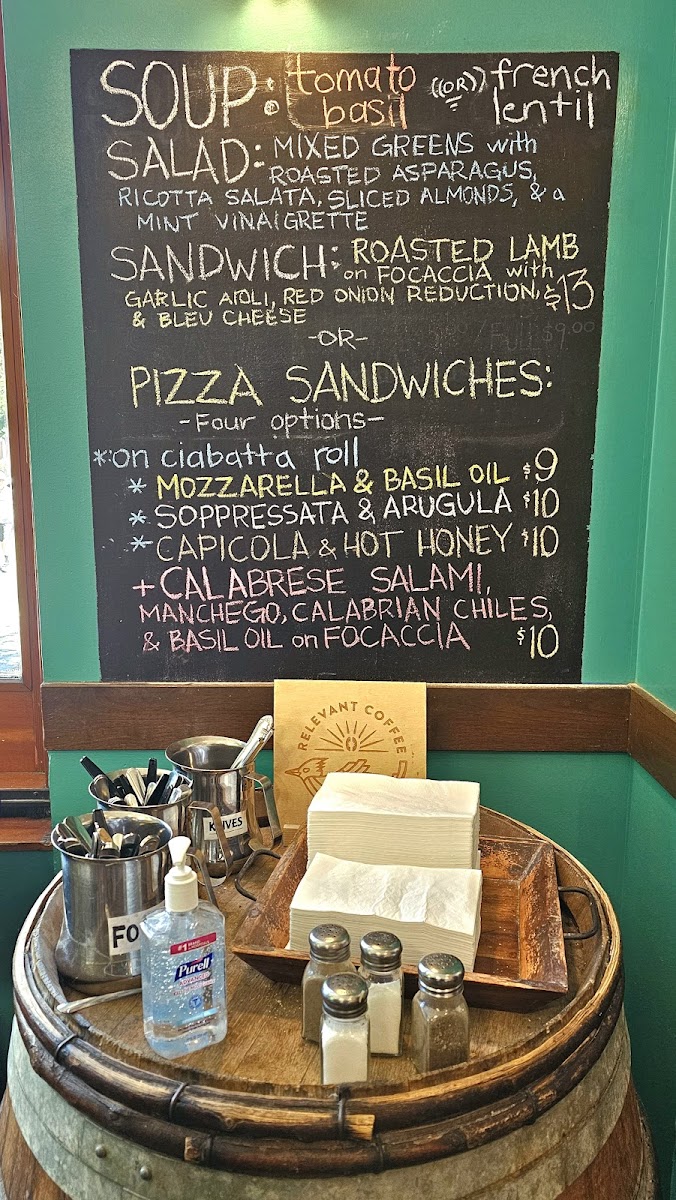 SOUP: tomato basil ((OR)) french lentil
SALAD: MIXED GREENS with
ROASTED ASPARAGUS,
RICOTTA SALATA, SLICED ALMONDS, & a
MINT VINAIGRETTE
SANDWICH: ROASTED LAMB
on FOCACCIA with
GARLIC AIOLI, RED ONION REDUCTION, $13
& BLEU CHEESE
-OR-
FULL $9.00
PIZZA SANDWICHES:
-Four options-
*:on ciabatta roll
* MOZZARELLA & BASIL OIL $9
* SOPPRESSATA & ARUGULA $10
* CAPICOLA & HOT HONEY $10
+ CALABRESE SALAMI,
MANCHEGO, CALABRIAN CHILES,
& BASIL OIL on FOCACCIA $10
RELEVANT COFFEE
KNIVES
FO
#1
Purell
ADVANCED